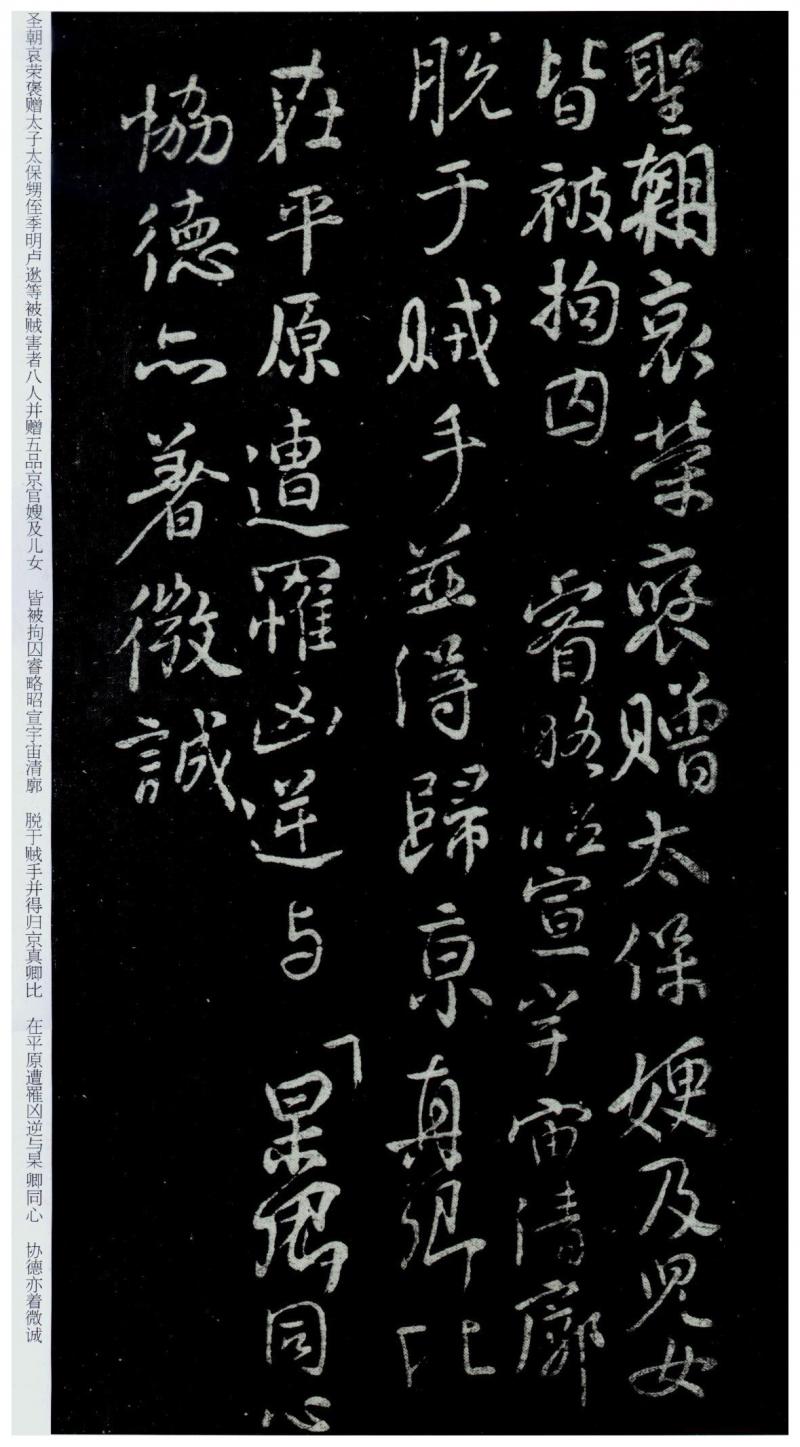 聖朝哀榮褒贈太保嫂及兒女
皆被拘囚　睿略昭宣宇宙清廓
脫于賊手並得歸京真卿比
在平原遭罹凶逆与　杲卿同心
協德亦著微誠
圣朝哀荣褒赠太子太保甥侄季明卢逖等被贼害者八人并赠五品京官嫂及儿女　皆被拘囚睿略昭宣宇宙清廓　脱于贼手并得归京真卿比　在平原遭罹凶逆与杲卿同心　协德亦着微诚